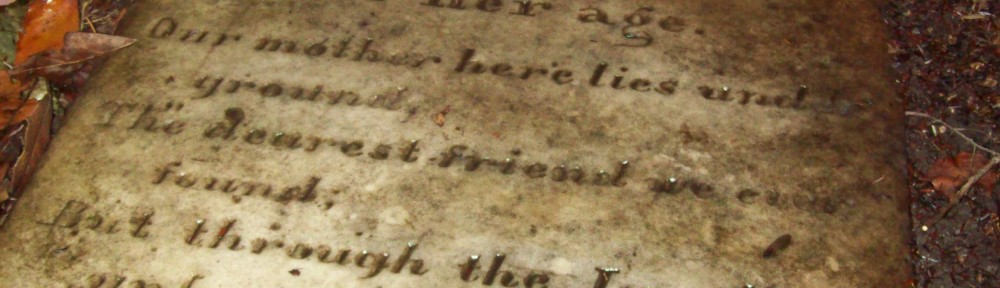 her age.
Our mother here lies under
ground,
The dearest friend we ever
found;
But through the